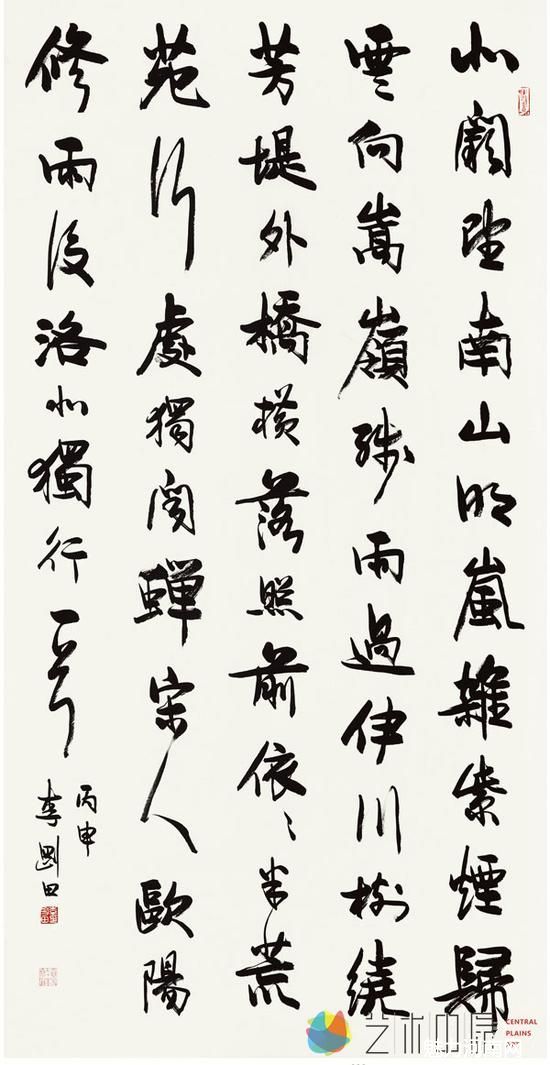 北闕望南山明嵐雜紫煙歸
雲向嵩嶺殘雨過伊川樹繞
芳堤外橋橫落照前依〻半荒
苑行處獨聞蟬宋人歐陽
修雨後洛北獨行一首
丙申
李剛田
艺术中原
CENTRAL
PLAINS
ART
魅力河南网